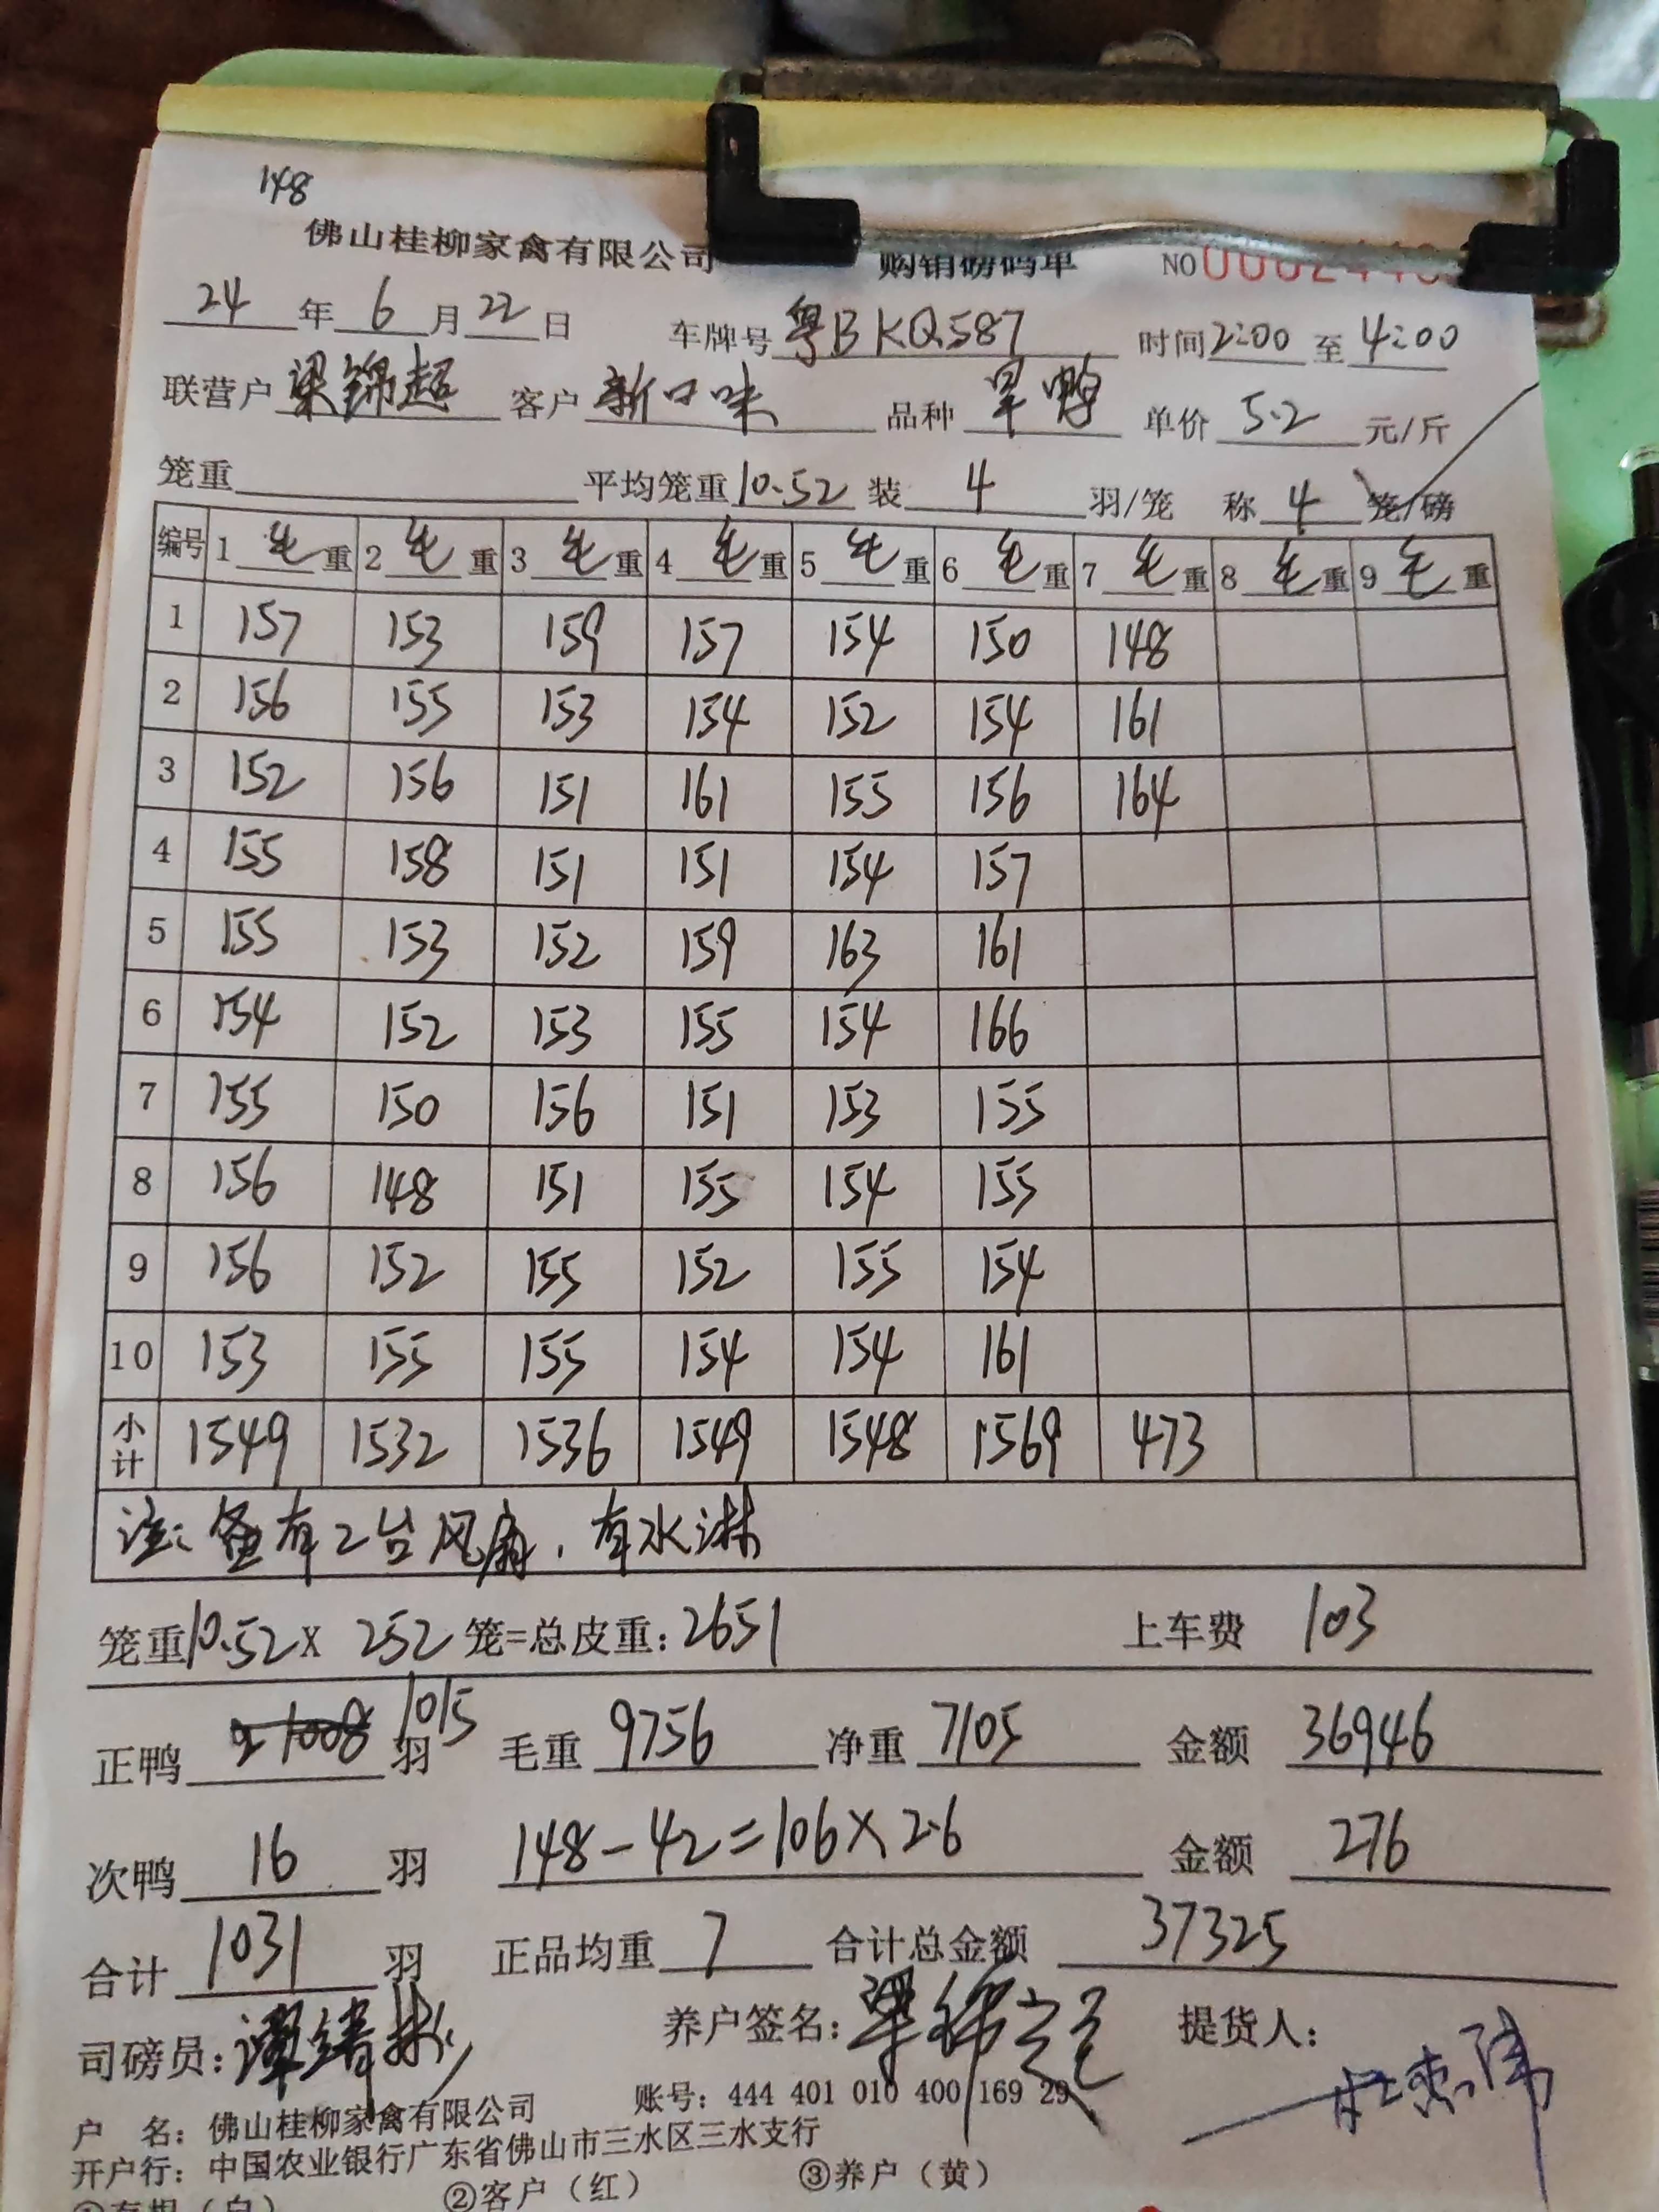 148
佛山桂柳家禽有限公司 购销磅码单 NO
24年6月22日 车牌号 粤BKQ587 时间2:00至4:00
联营户 梁锦超 客户 新口味 品种 旱鸭 单价 5.2 元/斤
笼重 平均笼重 10.52 装 4 羽/笼 称 4 笼/磅
编号 1 毛 重 2 毛 重 3 毛 重 4 毛 重 5 毛 重 6 毛 重 7 毛 重 8 毛 重 9 毛 重
1 157 153 159 157 154 150 148
2 156 155 153 154 152 154 161
3 152 156 151 161 155 156 164
4 155 158 151 151 154 157
5 155 153 152 159 163 161
6 154 152 153 155 154 166
7 155 150 156 151 153 155
8 156 148 151 155 154 155
9 156 152 155 152 155 154
10 153 155 155 154 154 161
小计 1549 1532 1536 1549 1548 1569 473
注: 备有2台风扇, 有水淋
笼重10.52X 252 笼=总皮重: 2651 上车费 103
正鸭 1008 1015 羽 毛重 9756 净重 7105 金额 36946
次鸭 16 羽 148-42=106×2.6 金额 276
合计 1031 羽 正品均重 7 合计总金额 37325
司磅员: 养户签名: 梁锦超 提货人:
户 名: 佛山桂柳家禽有限公司 账号: 444 401 010 400 169 29
开户行: 中国农业银行广东省佛山市三水区三水支行
②客户(红) ③养户(黄)